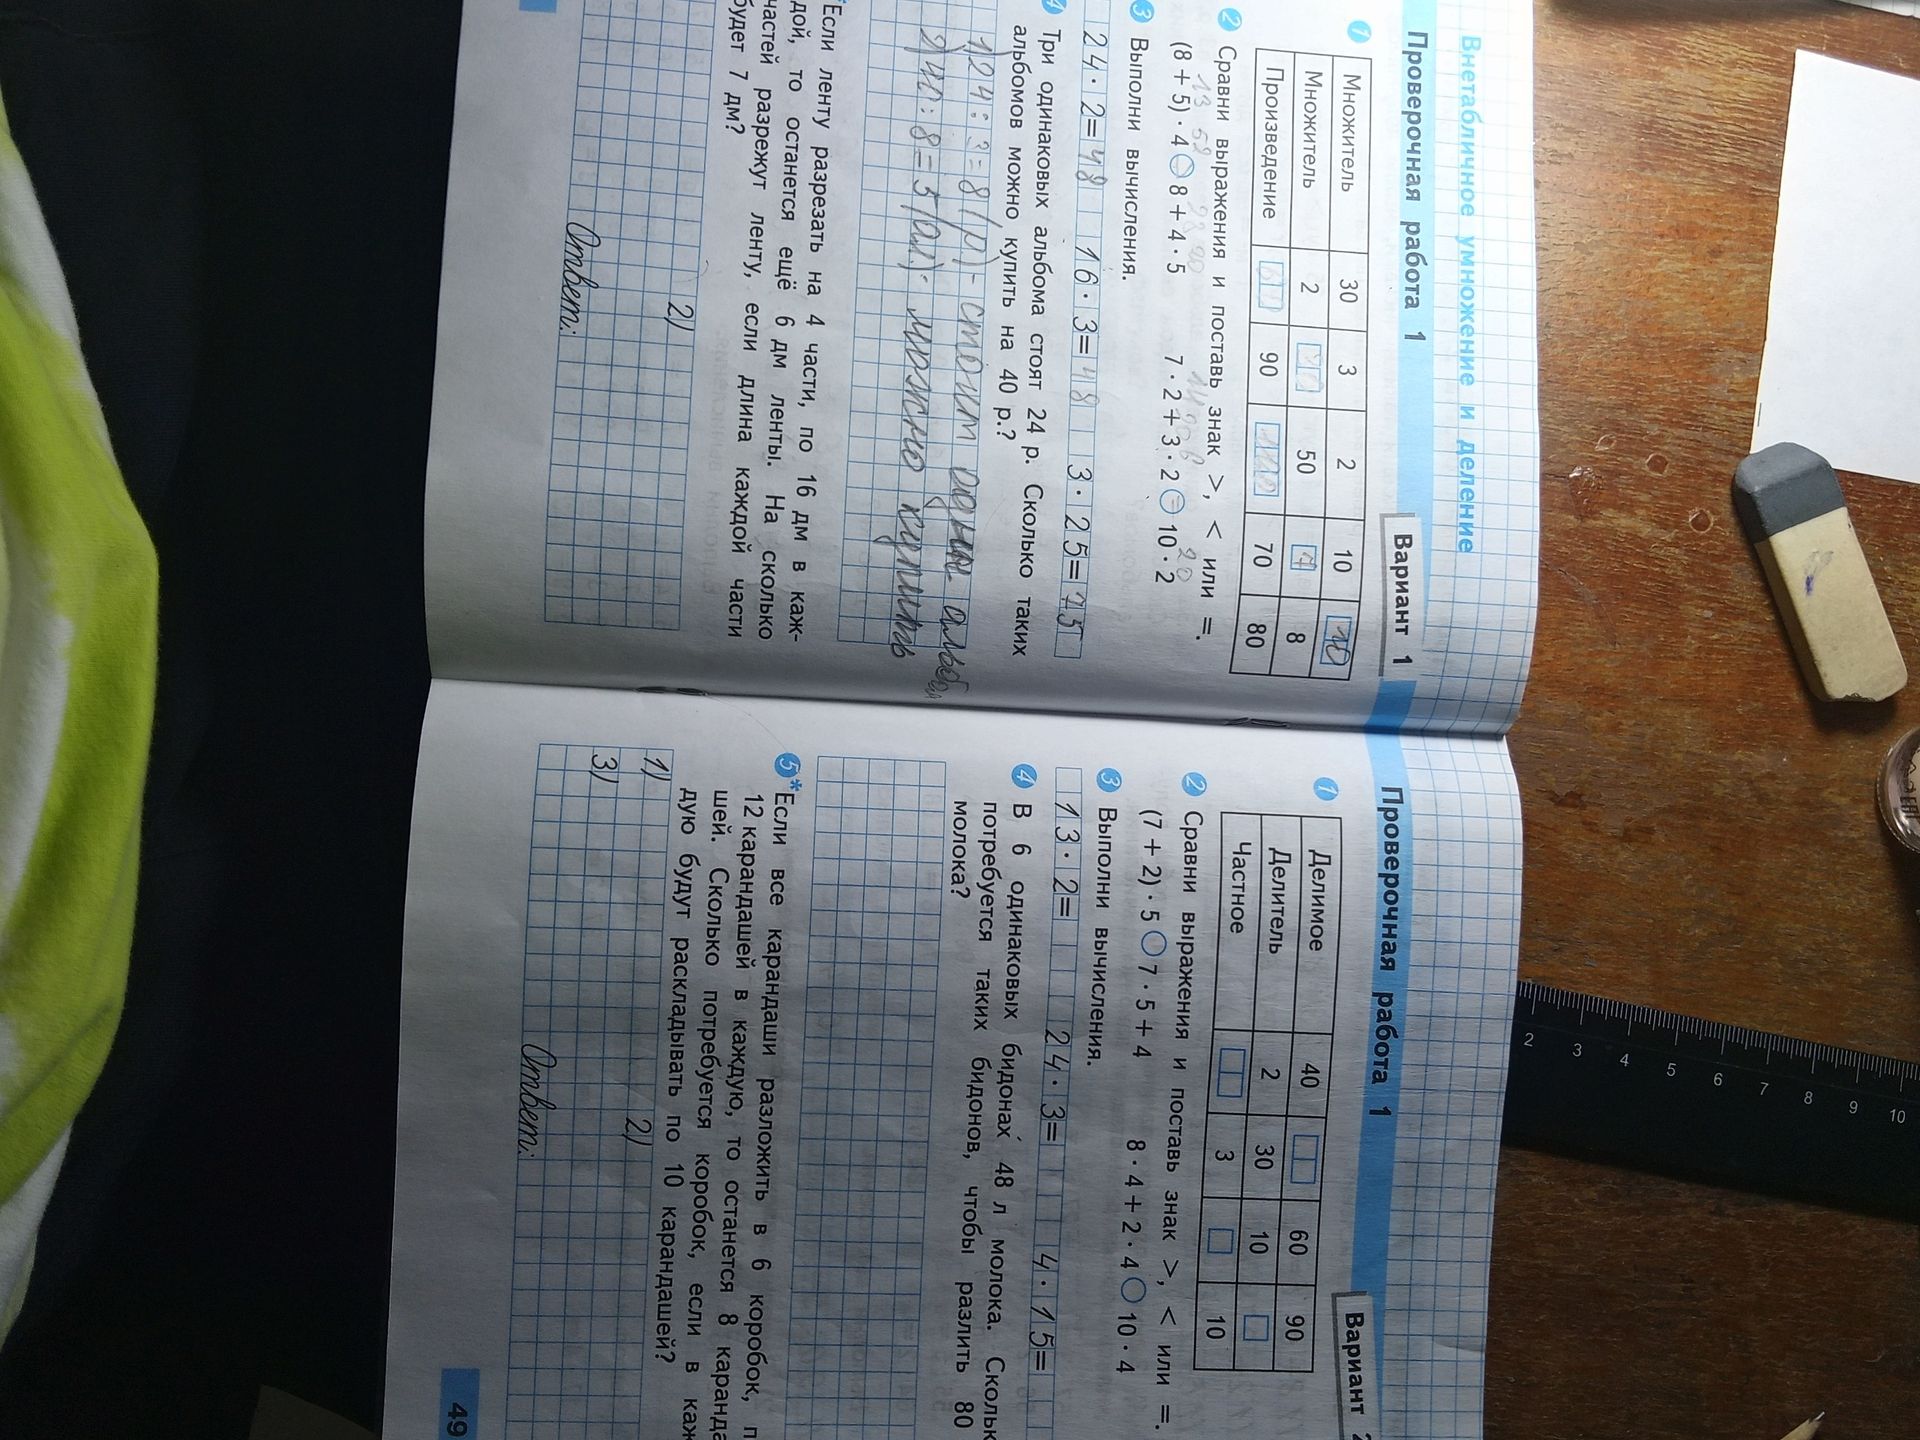 Внетабличное умножение и деление
Проверочная работа 1
Вариант 1
1
Множитель 30 3 2 10 10
Множитель 2 50 8
Произведение 90 70 80
2 Сравни выражения и поставь знак >, < или =.
13 52
20
(8 + 5) · 4 8 + 4 · 5 7 · 2 + 3 · 2 = 10 · 2
3 Выполни вычисления.
24 · 2 = 48 16 · 3 = 48 3 · 25 = 75
Три одинаковых альбома стоят 24 р. Сколько таких
альбомов можно купить на 40 р.?
1) 24 : 3 = 8 (р) - стоит один альбом
2) 40 : 8 = 5 (ал) - можно купить
*Если ленту разрезать на 4 части, по 16 дм в каж-
дой, то останется ещё 6 дм ленты. На сколько
частей разрежут ленту, если длина каждой части
будет 7 дм?
2)
Ответ:
Проверочная работа 1
Вариант 2
1
Делимое 40 60 90
Делитель 2 30 10
Частное 3 10
2 Сравни выражения и поставь знак >, < или =.
(7 + 2) · 5 7 · 5 + 4 8 · 4 + 2 · 4 10 · 4
3 Выполни вычисления.
13 · 2 = 24 · 3 = 4 · 15 =
4 В 6 одинаковых бидонах 48 л молока. Скольк
потребуется таких бидонов, чтобы разлить 80
молока?
5* Если все карандаши разложить в 6 коробок, п
12 карандашей в каждую, то останется 8 каранда
шей. Сколько потребуется коробок, если в каж
дую будут раскладывать по 10 карандашей?
1) 2)
3)
Ответ:
49
2 3 4 5 6 7 8 9 10